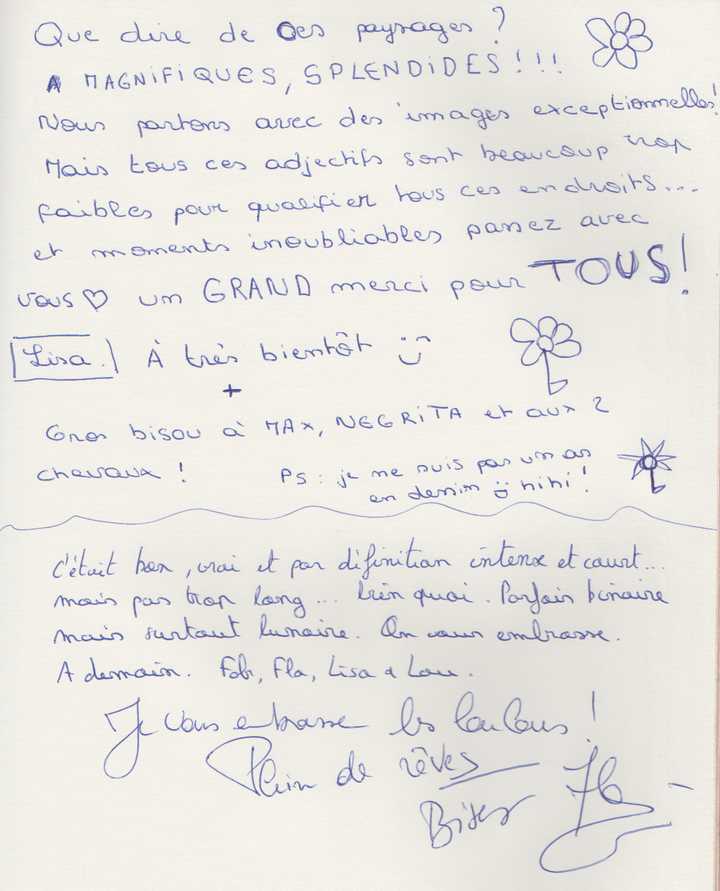 Que dire de Ces paysages ?
A MAGNIFIQUES, SPLENDIDES !!!
Nous partons avec des images exceptionnelles!
Mais tous ces adjectifs sont beaucoup trop
faibles pour qualifier tous ces endroits...
et moments inoubliables passez avec
vous ♡ un GRAND merci pour TOUS!
Lisa. À très bientôt
+
Gros bisou à MAX, NEGRITA et aux 2
chevaux !
PS : je ne suis pas un as
en dessin hihi !
C'était bon, vrai et par définition intense et court...
mais pas trop long... bien quoi. Parfois binaire
mais surtout lunaire. On vous embrasse.
A demain. Fab, Fla, Lisa & Lou.
Je vous embrasse les loulous !
Plein de rêves
Bises